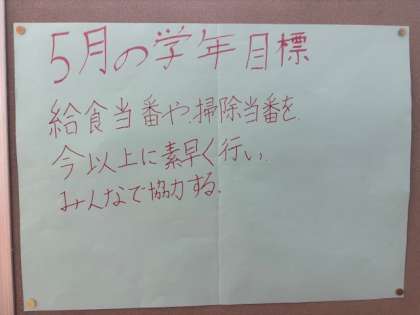 5月の学年目標
給食当番や、掃除当番を
今以上に素早く行い、
みんなで協力する。